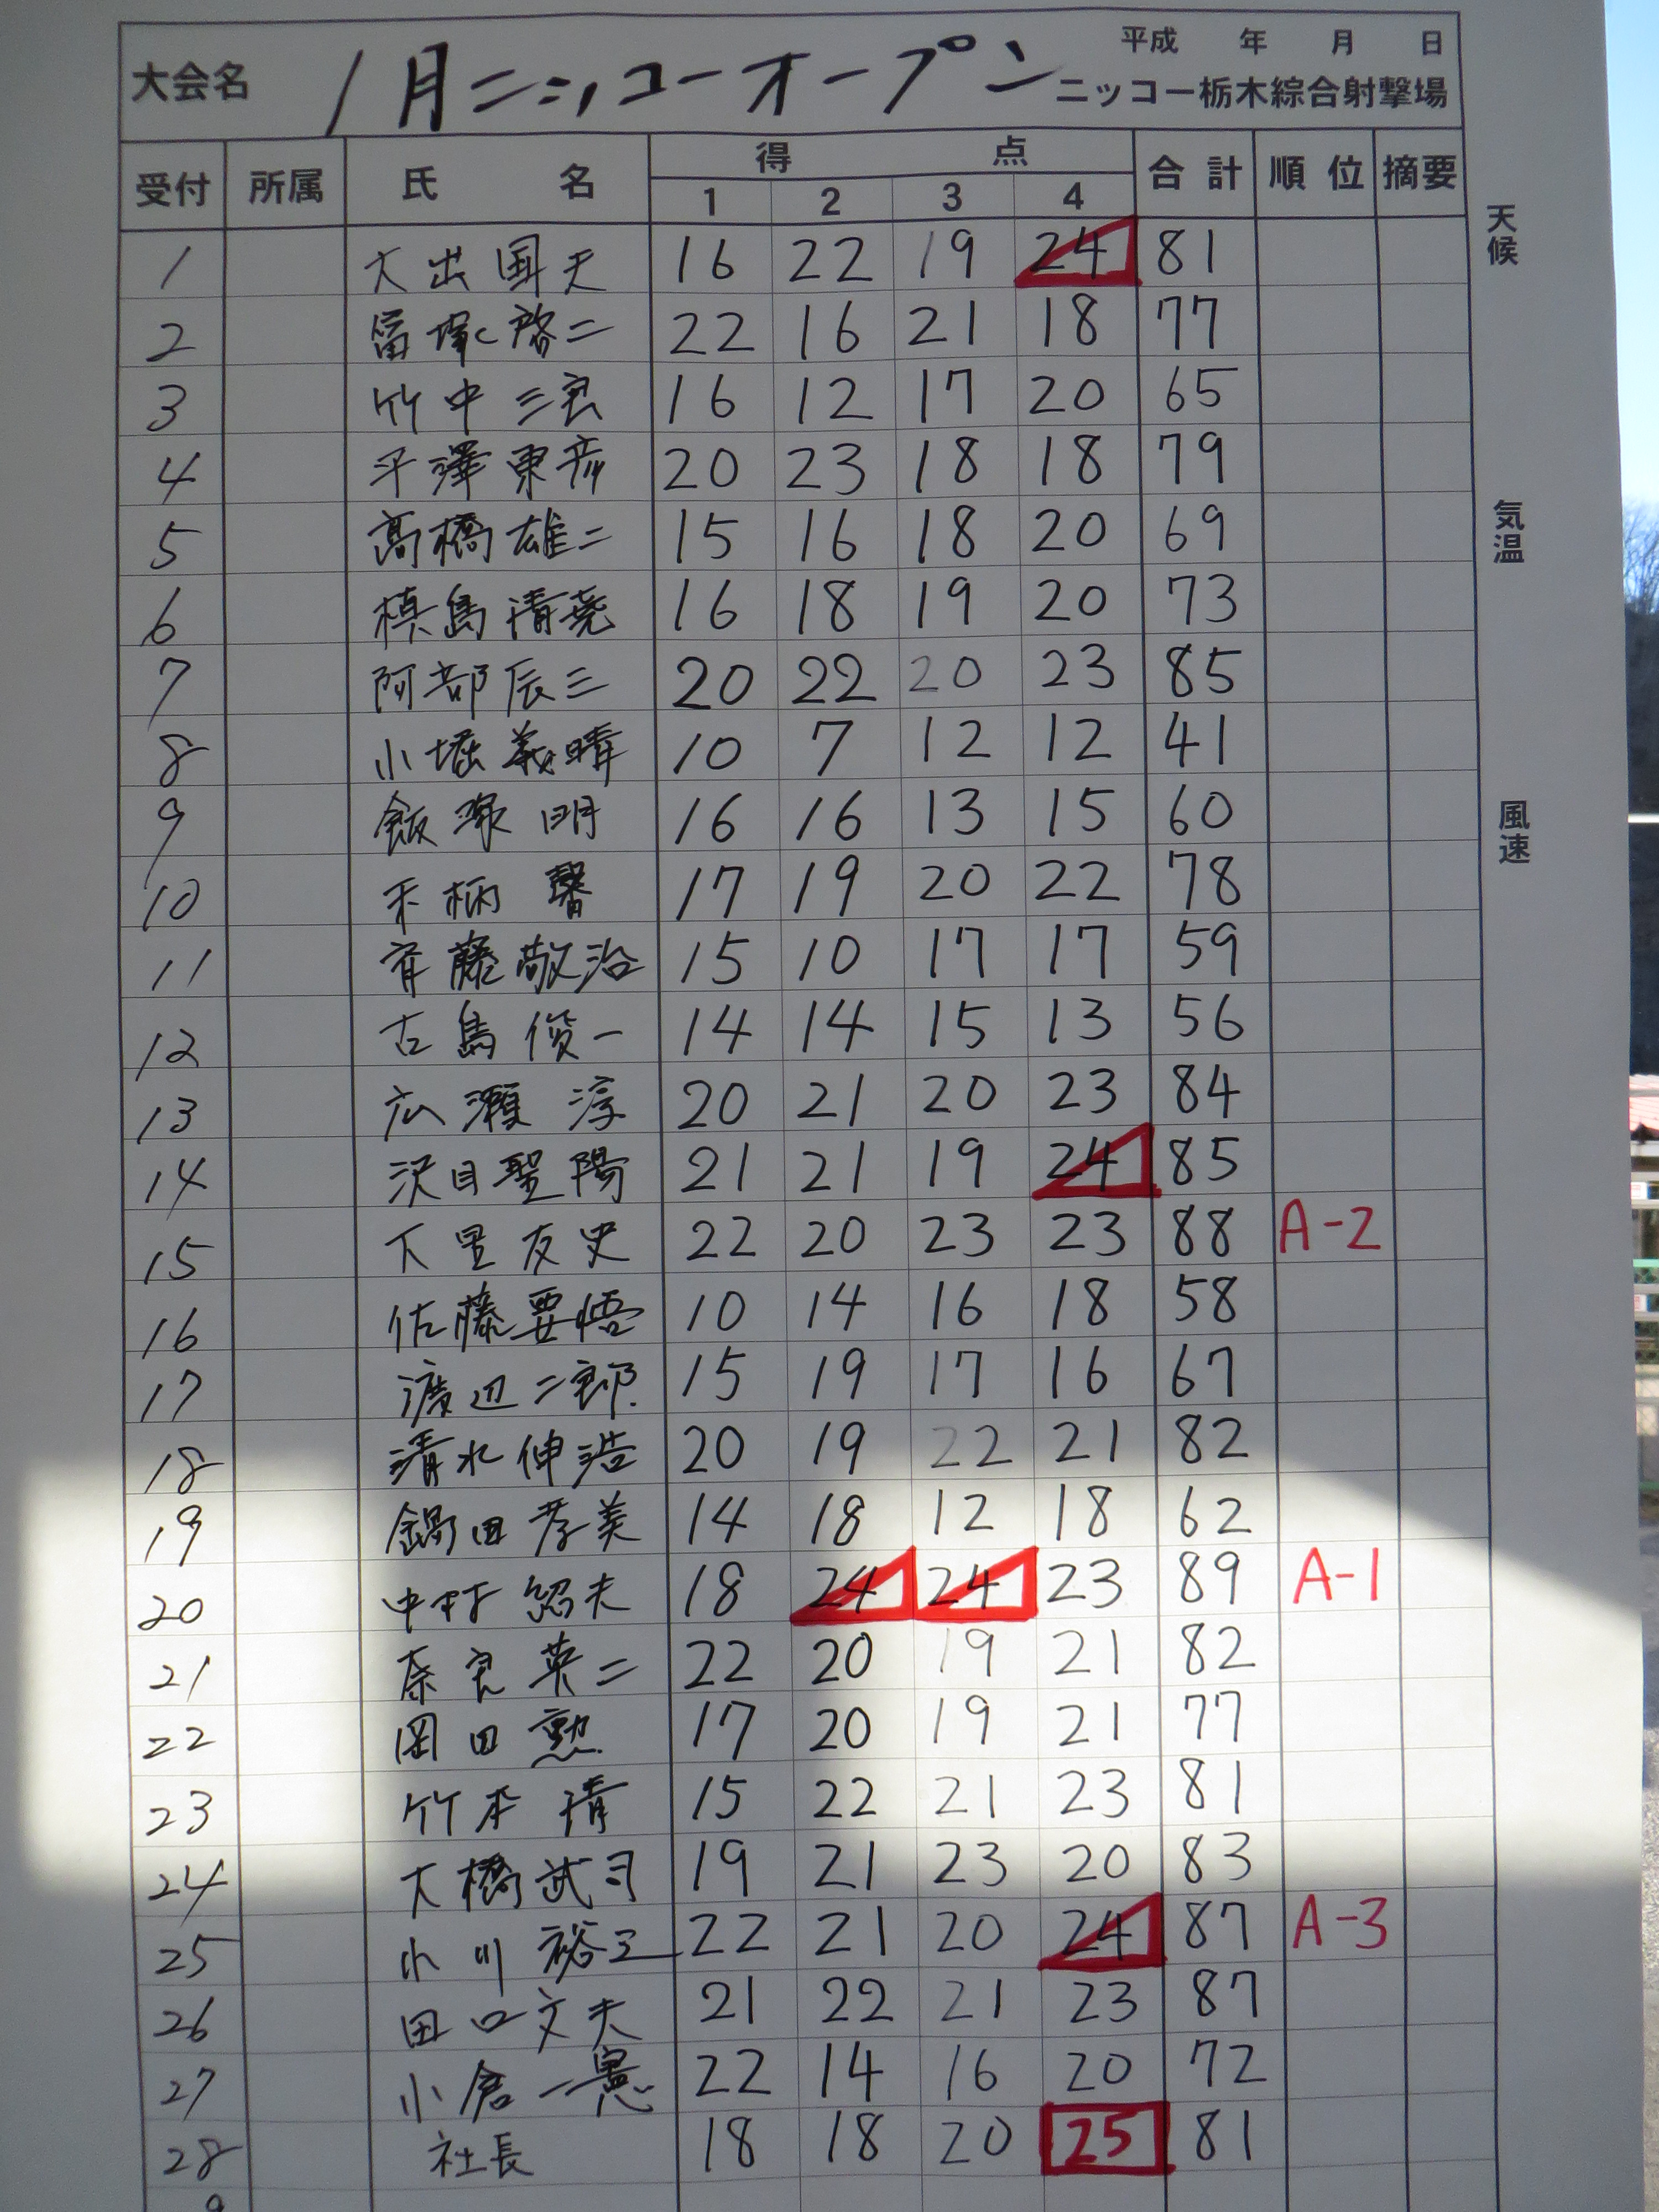 平成　年　月　日
大会名 1月ニッコーオープン ニッコー栃木綜合射撃場
受付 所属 氏名 得点 合計 順位 摘要
1 2 3 4
天候
気温
風速
1 大出国夫 16 22 19 24 81
2 富塚啓二 22 16 21 18 77
3 竹中三良 16 12 17 20 65
4 平澤東彦 20 23 18 18 79
5 高橋雄二 15 16 18 20 69
6 槙島清堯 16 18 19 20 73
7 阿部辰三 20 22 20 23 85
8 小堀義晴 10 7 12 12 41
9 飯塚明 16 16 13 15 60
10 柄 馨 17 19 20 22 78
11 斉藤敬治 15 10 17 17 59
12 古島俊一 14 14 15 13 56
13 広瀬淳 20 21 20 23 84
14 沢目聖陽 21 21 19 24 85
15 下里友史 22 20 23 23 88 A-2
16 佐藤要悟 10 14 16 18 58
17 渡辺二郎 15 19 17 16 67
18 清水伸浩 20 19 22 21 82
19 鍋田孝美 14 18 12 18 62
20 中村紹夫 18 24 24 23 89 A-1
21 奈良英二 22 20 19 21 82
22 岡田勲 17 20 19 21 77
23 竹本清 15 22 21 23 81
24 大橋武司 19 21 23 20 83
25 小川裕 22 21 20 24 87 A-3
26 田口文夫 21 22 21 23 87
27 小倉一憲 22 14 16 20 72
28 社長 18 18 20 25 81